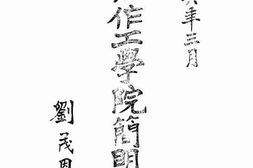 年三月
作工學院簡明
劉茂恩